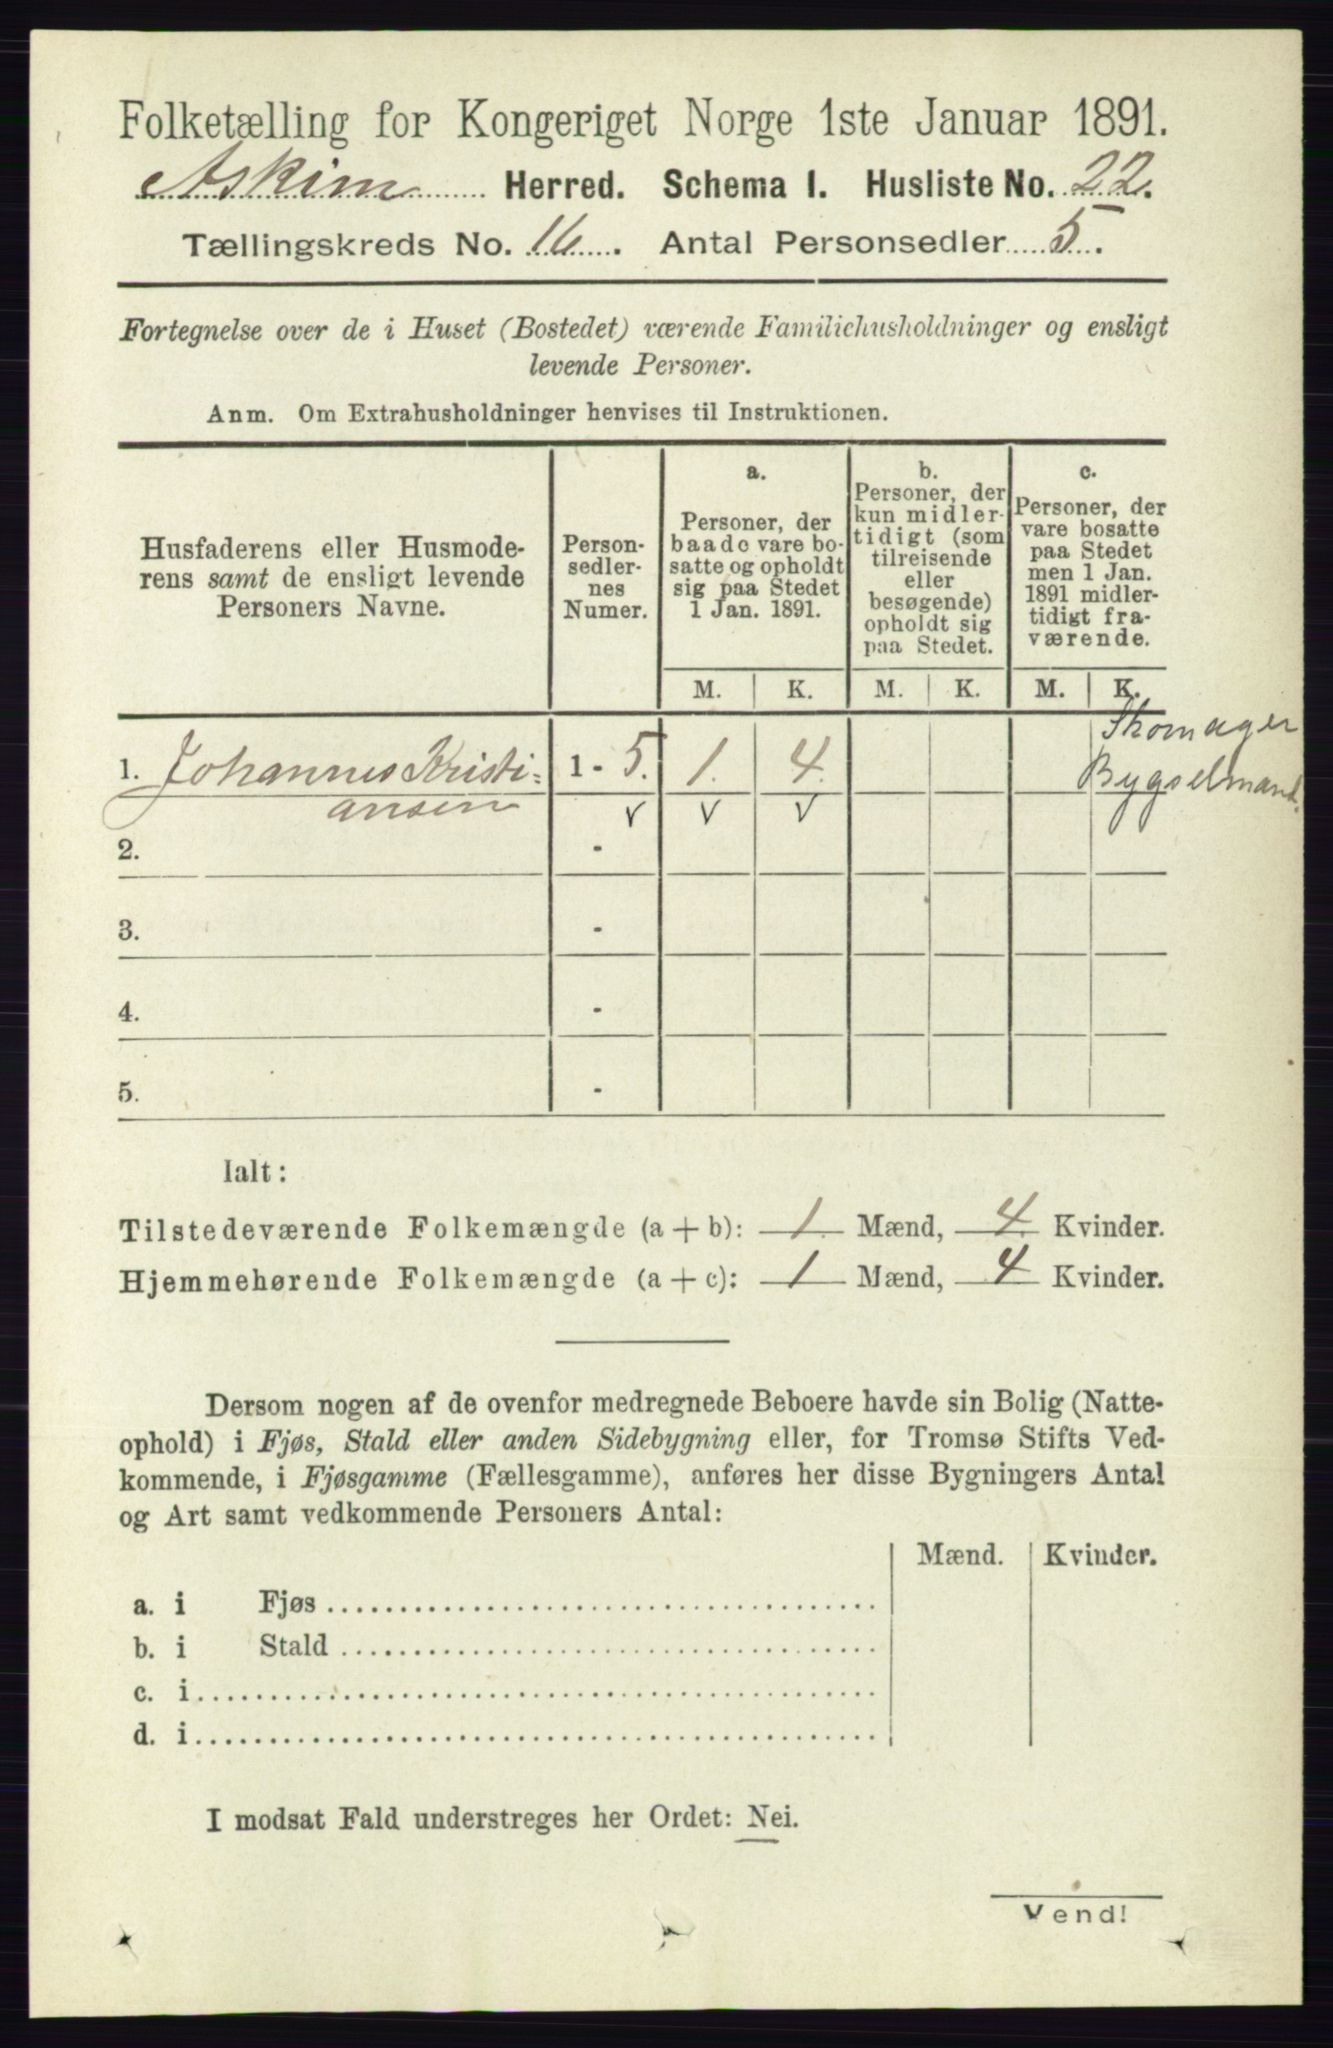 Folketælling for Kongeriget Norge 1ste Januar 1891.
Askim Herred. Schema I. Husliste No. 22.
Tællingskreds No. 16. Antal Personsedler 5.
Fortegnelse over de i Huset (Bostedet) værende Familiehusholdninger og ensligt
levende Personer.
Anm. Om Extrahusholdninger henvises til Instruktionen.
Husfaderens eller Husmode-
rens samt de ensligt levende
Personers Navne.
Person-
sedler-
nes
Numer.
a.
Personer, der
baade vare bo-
satte og opholdt
sig paa Stedet
1 Jan. 1891.
b.
Personer, der
kun midler-
tidigt (som
tilreisende
eller
besøgende)
opholdt sig
paa Stedet.
c.
Personer, der
vare bosatte
paa Stedet
men 1 Jan.
1891 midler-
tidigt fra-
værende.
M. K. M. K. M. K.
Skomager
1. Johannes Kristi= 1 - 5. 1. 4. Bygselmand.
ansen v v v
2. -
3. -
4. -
5. -
Ialt:
Tilstedeværende Folkemængde (a + b): 1. Mænd, 4. Kvinder.
Hjemmehørende Folkemængde (a + c): 1 Mænd, 4 Kvinder.
Dersom nogen af de ovenfor medregnede Beboere havde sin Bolig (Natte-
ophold) i Fjøs, Stald eller anden Sidebygning eller, for Tromsø Stifts Ved-
kommende, i Fjøsgamme (Fællesgamme), anføres her disse Bygningers Antal
og Art samt vedkommende Personers Antal:
Mænd. Kvinder.
a. i Fjøs
b. i Stald
c. i
d. i
I modsat Fald understreges her Ordet: Nei.
Vend!